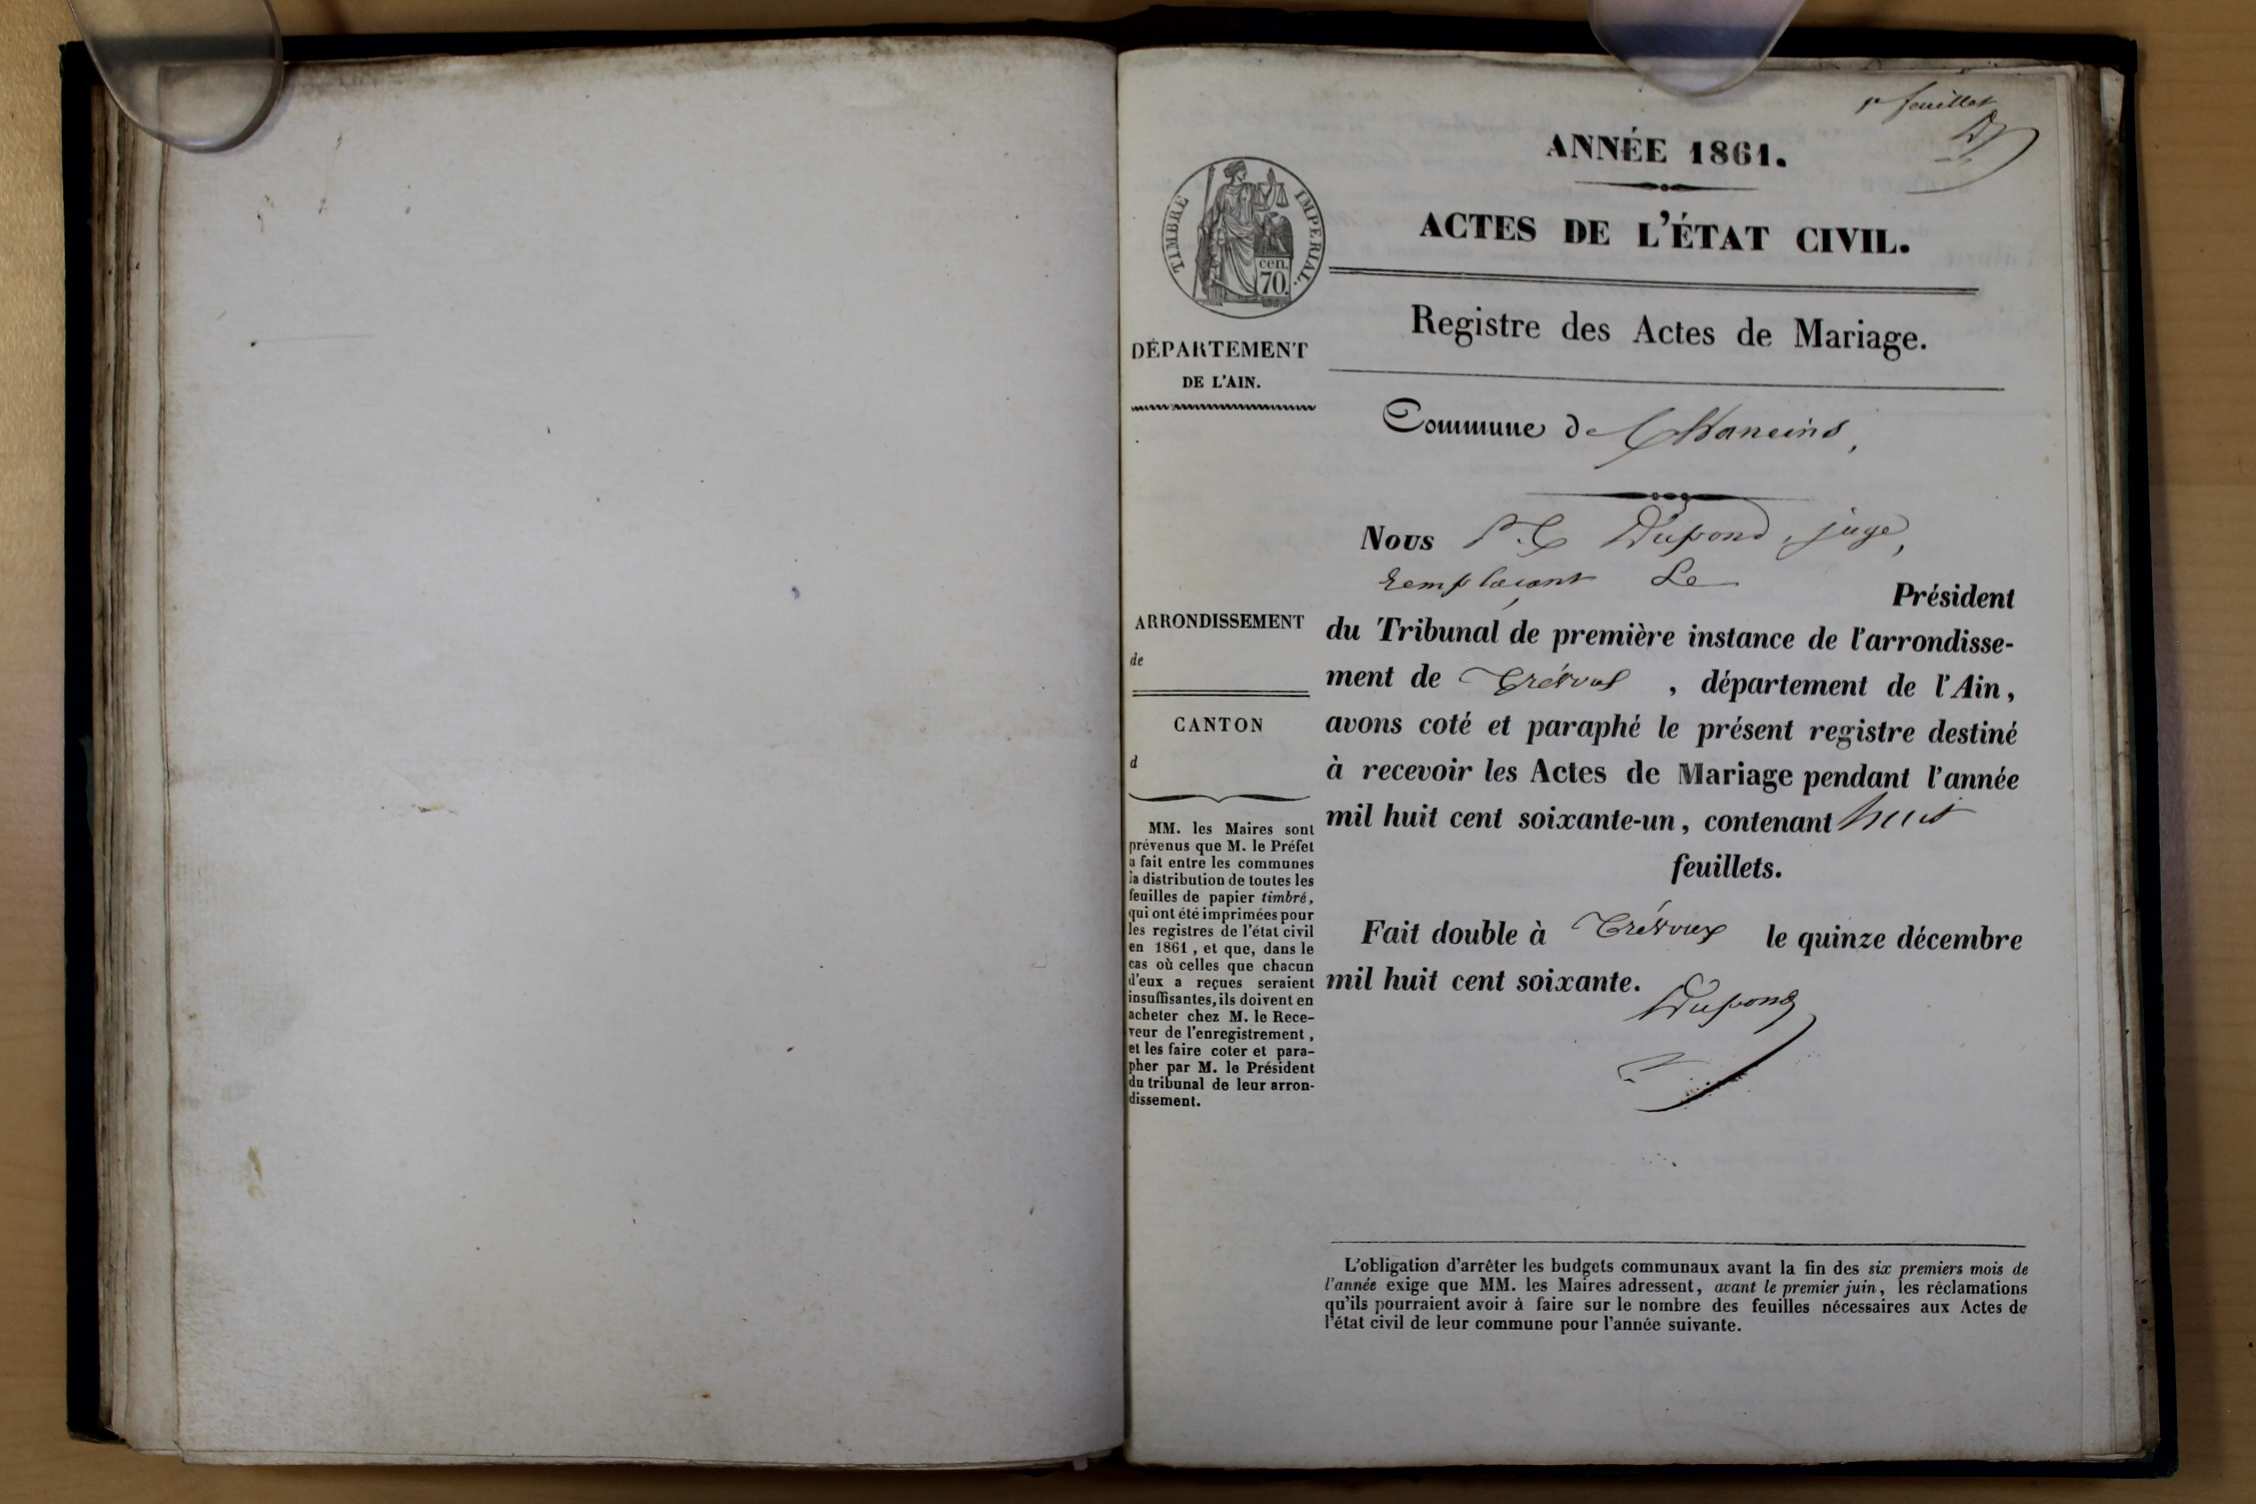 1er feuillet
ANNÉE 1861.
ACTES DE L'ÉTAT CIVIL.
Registre des Actes de Mariage.
TIMBRE IMPERIAL.
cen.
70.
DÉPARTEMENT
DE L'AIN.
Commune de Chaneins,
ARRONDISSEMENT
de
CANTON
d
MM. les Maires sont
prévenus que M. le Préfet
a fait entre les communes
la distribution de toutes les
feuilles de papier timbré,
qui ont été imprimées pour
les registres de l'état civil
en 1861, et que, dans le
cas où celles que chacun
d'eux a reçues seraient
insuffisantes, ils doivent en
acheter chez M. le Rece-
veur de l'enregistrement,
et les faire coter et para-
pher par M. le Président
du tribunal de leur arron-
dissement.
Nous Dupond, juge,
remplaçant Le Président
du Tribunal de première instance de l'arrondisse-
ment de Trévoux, département de l'Ain,
avons coté et paraphé le présent registre destiné
à recevoir les Actes de Mariage pendant l'année
mil huit cent soixante-un, contenant huit
feuillets.
Fait double à Trévoux le quinze décembre
mil huit cent soixante.
Dupond
L'obligation d'arrêter les budgets communaux avant la fin des six premiers mois de
l'année exige que MM. les Maires adressent, avant le premier juin, les réclamations
qu'ils pourraient avoir à faire sur le nombre des feuilles nécessaires aux Actes de
l'état civil de leur commune pour l'année suivante.